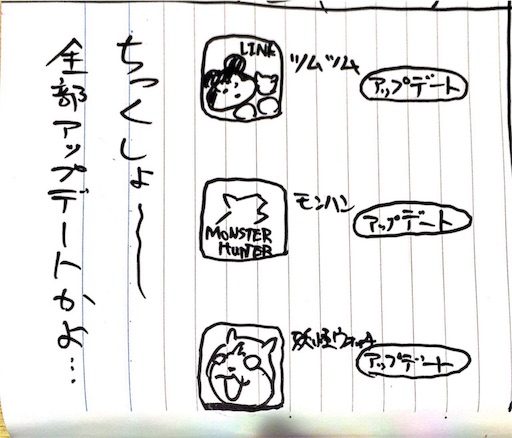 ちっくしょ〜
全部アップデートかよ…
LINK
ツムツム
アップデート
MONSTER
HUNTER
モンハン
アップデート
妖怪ウォッチ
アップデート